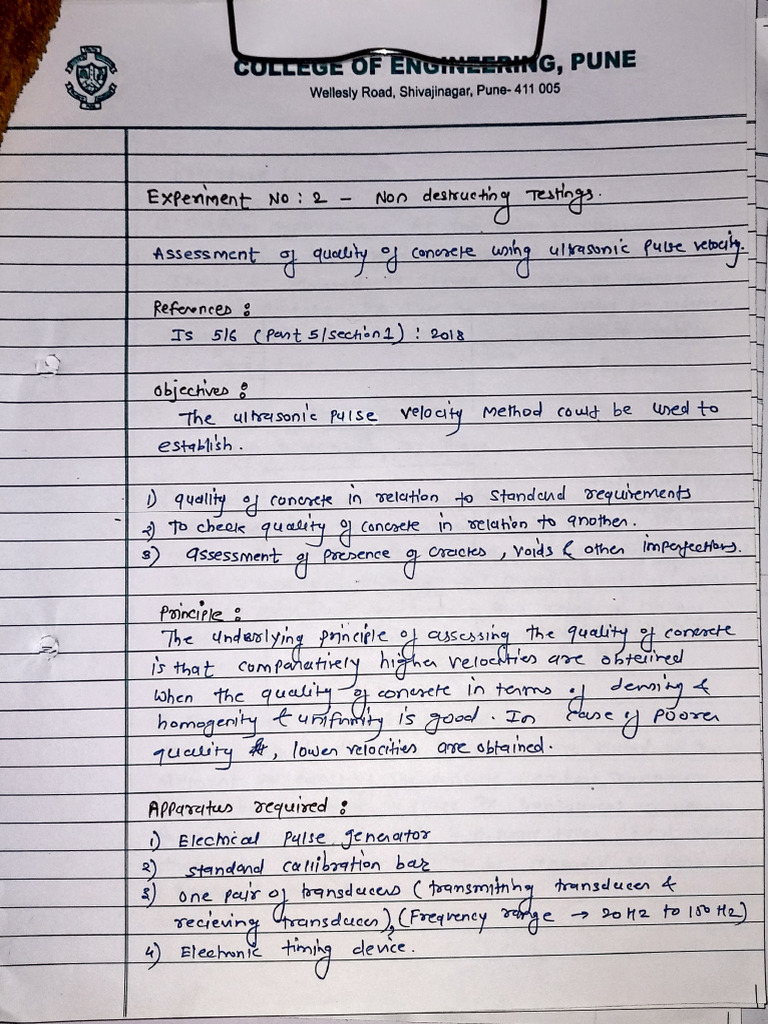 COLLEGE OF ENGINEERING, PUNE
Wellesly Road, Shivajinagar, Pune- 411 005
Experiment No : 2 - Non destructing Testings.
Assessment of quality of concrete using ultrasonic pulse velocity.
References :
Is 516 (part 5/section 1) : 2018
Objectives :
The ultrasonic pulse velocity method could be used to
establish.
1) quality of concrete in relation to standard requirements
2) To check quality of concrete in relation to another.
3) assessment of presence of cracks, voids & other imperfections.
Principle :
The underlying principle of assessing the quality of concrete
is that comparatively higher velocities are obtained
when the quality of concrete in terms of density &
homogenity & unifrmity is good. In case of poorer
quality, lower velocities are obtained.
Apparatus required :
1) Electrical pulse generator
2) standard callibration bar
3) one pair of transducers (transmitting transducer &
recieving transducer), (Frequency range → 20Hz to 150 Hz)
4) Electronic timing device.